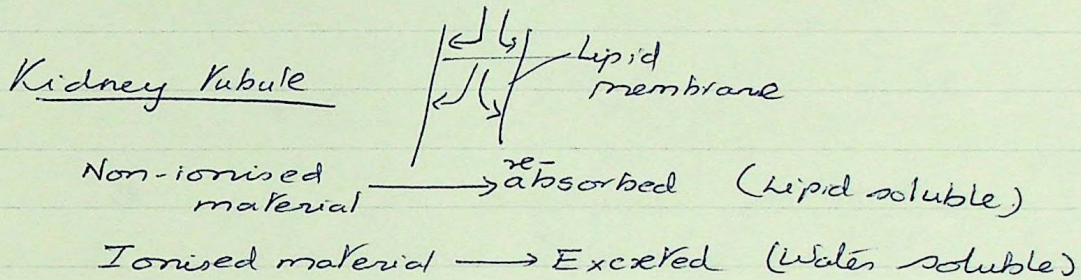 Kidney tubule
Lipid
membrane
Non-ionised
material → re-absorbed (Lipid soluble)
Ionised material → Excreted (Water soluble)